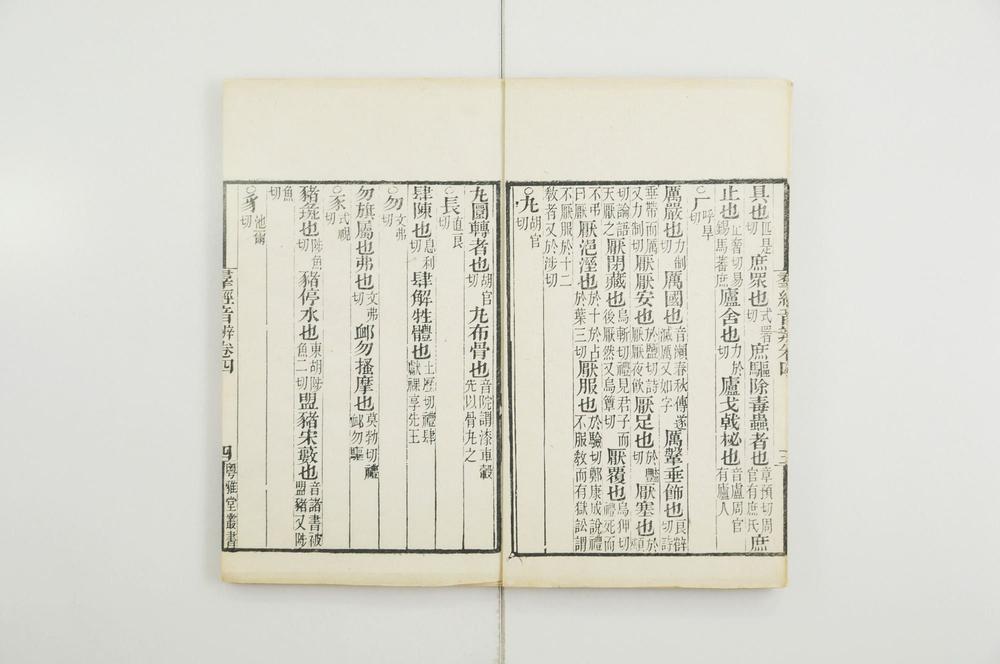 具也匹是切庶眾也式署切庶驅除毒蟲者也章預切周官有庶氏庶
止也正奢切易錫馬蕃庶廬舍也力於切廬戈戟柲也音盧周官有廬人
○厂呼旱切
厲嚴也力制切厲國也音瀨春秋傳遂滅厲又如字厲鞶垂飾也良辥切詩
垂帶而厲又力制切厭安也於鹽切詩厭厭夜飲厭足也於豔切厭塞也於頰
切論語天厭之厭閉藏也烏斬切禮見君子而後厭然又烏簟切厭覆也烏狎切禮死而
不弔曰厭厭浥溼也於十於占於葉三切厭服也於驗切鄭康成說禮不服教而有獄訟謂
不厭服於十二教者又於涉切
○丸胡官切
丸圜轉者也胡官切丸布骨也音院謂漆車轂先以骨丸之
○長直良切
肆陳也息利切肆解牲體也土歷切禮肆獻祼享先王
○勿文弗切
勿旗屬也弗也文弗切卹勿搔摩也莫勃切禮卹勿驅
○豕式視切
豬豵也陟魚切豬停水也東胡陟魚二切盟豬宋藪也音諸書被盟豬又陟
魚切
○豸池爾切
羣經音辨卷四
三
羣經音辨卷四
四
粵雅堂叢書